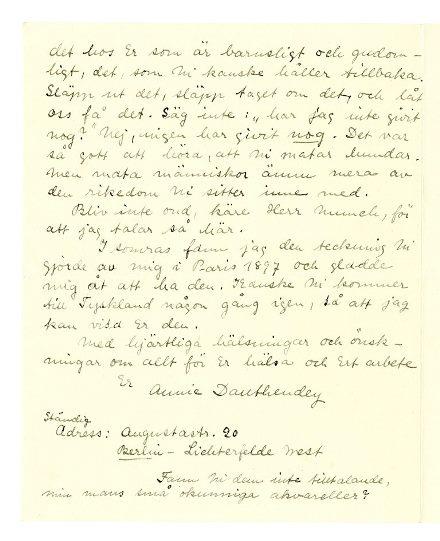 det hos Er som är barnsligt och gudom-
ligt, det, som Ni kanske håller tillbaka.
Släpp ut det, släpp taget om det, och låt
oss få det. Säg inte: „har jag inte givit
nog?" Nej, ingen har givit nog. Det var
så gott att höra, att Ni matar hundar.
Men mata människor ännu mera av
den rikedom Ni sitter inne med.
Bliv inte ond, käre Herr Munch, för
att jag talar så här.
I somras fann jag den teckning Ni
gjorde av mig i Paris 1897 och gladde
mig åt att ha den. Kanske Ni kommer
till Tyskland någon gång igen, så att jag
kan visa Er den.
Med hjärtliga hälsningar och önsk-
ningar om allt för Er hälsa och Ert arbete
Er
Annie Dauthendey
Ständig
Adress: Augustastr. 20
Berlin - Lichterfelde West
Fann Ni dem inte tilltalande,
min mans små okunniga akvareller?